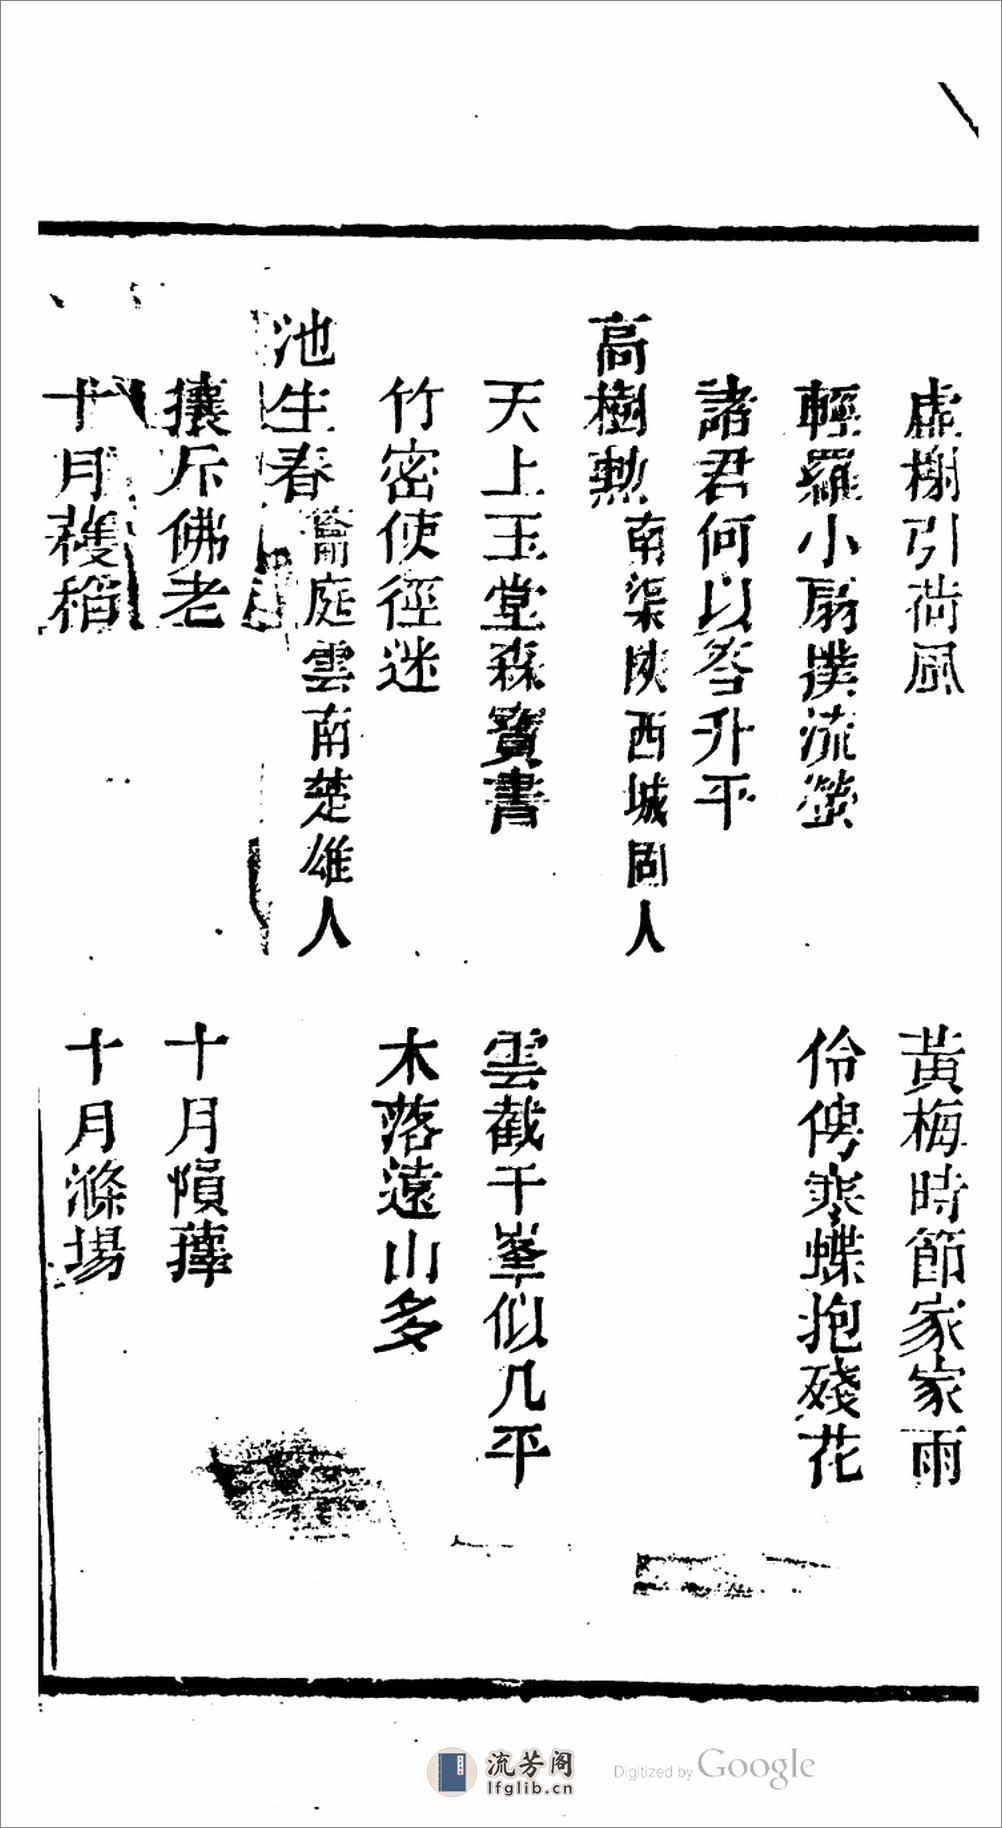 虛榭引荷風
黃梅時節家家雨
輕羅小扇撲流螢
伶俜寒蝶抱殘花
諸君何以答升平
高樹勲 南渠陝西城固人
天上玉堂森寶書
雲截千峯似几平
竹密使徑迷
木落遠山多
池生春 籥庭雲南楚雄人
攘斥佛老
十月隕蘀
十月穫稻
十月滌場
流芳阁
lfglib.cn
Digitized by Google